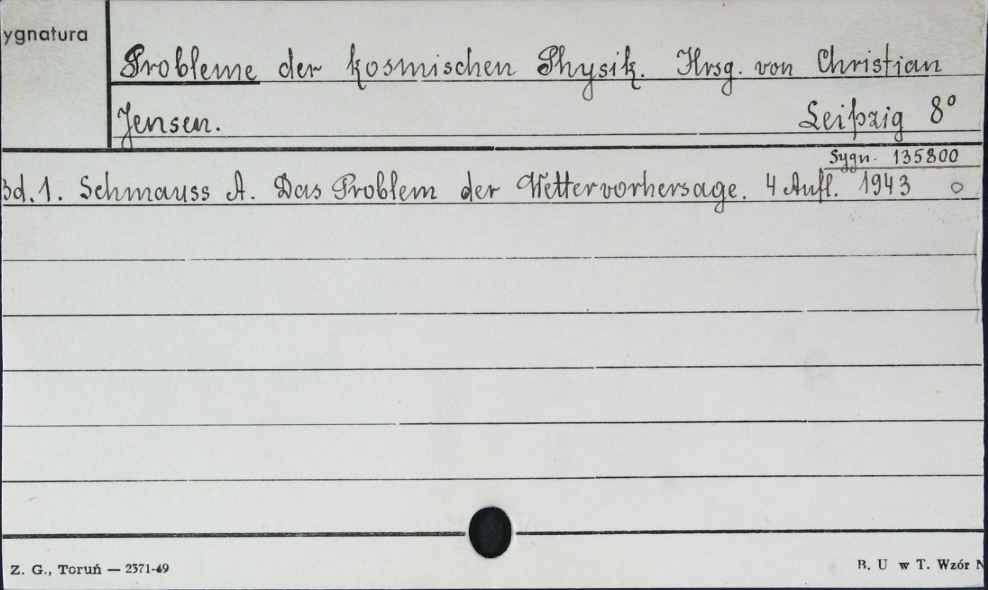 ygnatura
Probleme der kosmischen Physik. Hrsg. von Christian
Jensen. Leipzig 8°
Sygn. 135800
Bd.1. Schmauss A. Das Problem der Wettervorhersage. 4 Aufl. 1943
Z. G., Toruń — 2371-49
B. U w T. Wzór N